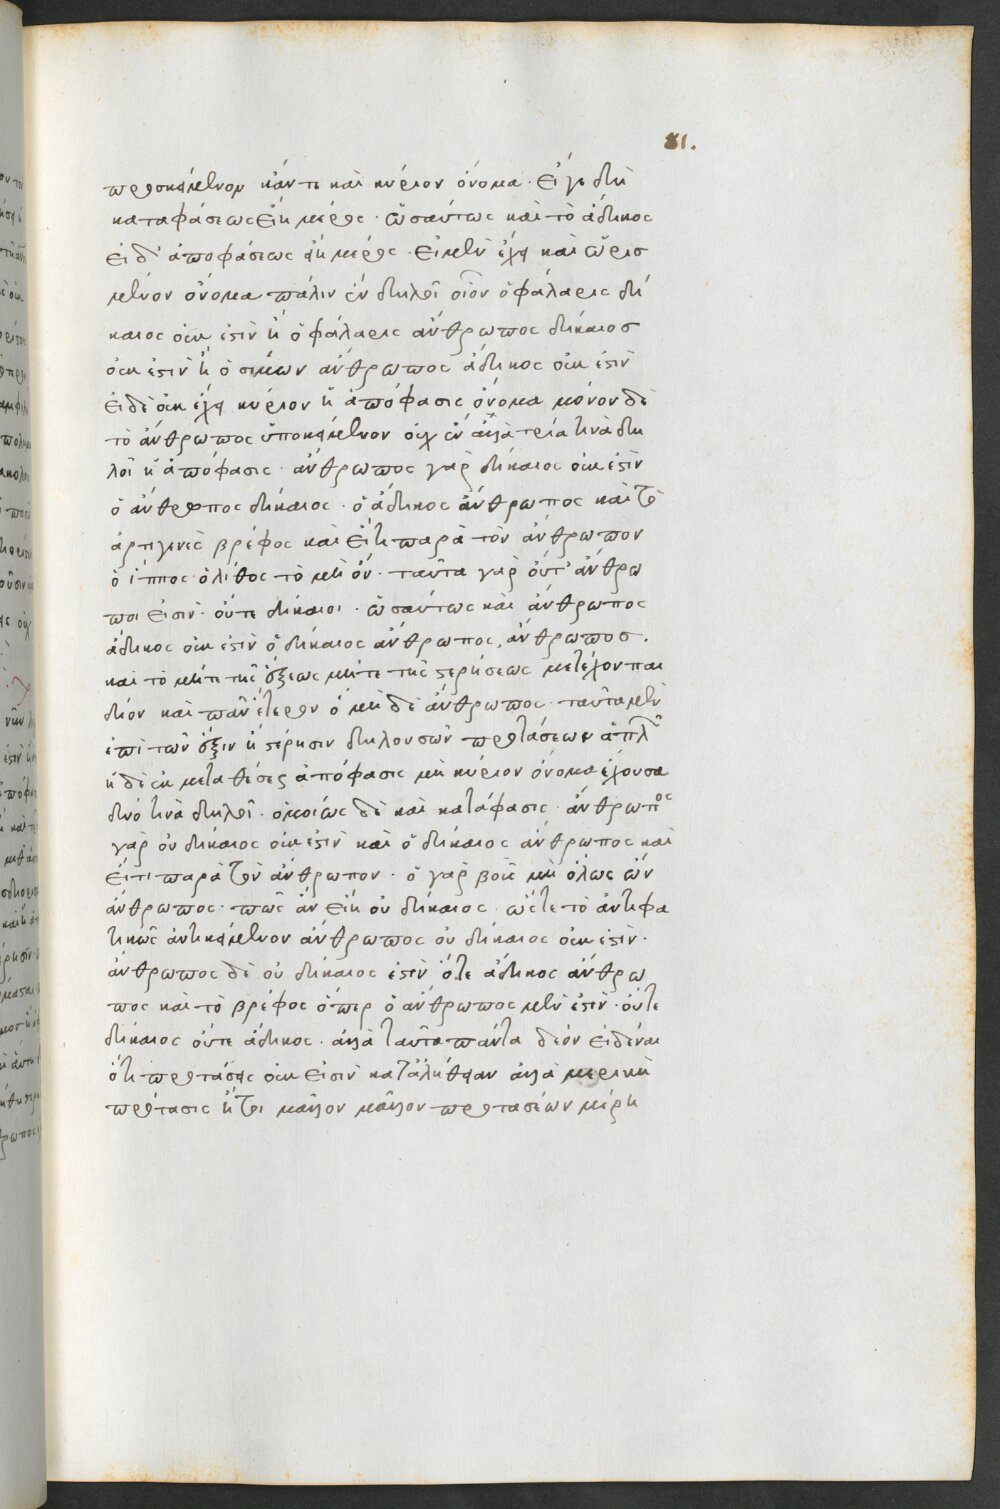 81.
προσκείμενον κἄν τε καὶ κύριον ὄνομα. εἴγε δὴ
καταφάσεως εἴη μέρος. ὡσαύτως καὶ τὸ ἄδικος
εἰ δ' ἀποφάσεως εἴη μέρος. εἰ μὲν ἔχει καὶ ὡρισ
μένον ὄνομα πάλιν ἓν δηλοῖ οἷον ὁ φάλαρις δί
καιος οὐκ ἐστὶν ἢ ὁ φάλαρις ἄνθρωπος δίκαιος
οὐκ ἐστὶν ἢ ὁ σιμων ἄνθρωπος ἄδικος οὐκ ἐστὶν
εἰ δὲ οὐκ ἔχει κύριον ἡ ἀπόφασις ὄνομα μόνον δὲ
τὸ ἄνθρωπος ὑποκείμενον οὐχ ἓν ἀλλὰ τρία τινὰ δη
λοῖ ἡ ἀπόφασις. ἄνθρωπος γὰρ δίκαιος οὐκ ἐστὶν
ὁ ἄνθρωπος δίκαιος. ὁ ἄδικος ἄνθρωπος καὶ τὸ
ἀρτιγενὲς βρέφος καὶ ἔτι παρὰ τὸν ἄνθρωπον
ὁ ἵππος ὁ λίθος τὸ μὴ ὄν. ταῦτα γὰρ οὔτ' ἄνθρω
ποι εἰσὶν. οὔτε δίκαιοι. ὡσαύτως καὶ ἄνθρωπος
ἄδικος οὐκ ἐστὶν ὁ δίκαιος ἄνθρωπος, ἄνθρωπος.
καὶ τὸ μήτε τῆς ἕξεως μήτε τῆς στερήσεως μετέχον παι
δίον καὶ πᾶν ἕτερον ὁ μὴ δὲ ἄνθρωπος. ταῦτα μὲν
ἐπὶ τῶν ἕξιν ἢ στέρησιν δηλουσῶν προτάσεων ἁπλῶ
ἡ δὲ ἐκ μεταθέσεως ἀπόφασις μὴ κύριον ὄνομα ἔχουσα
δύό τινὰ δηλοῖ. ὁμοίως δὲ καὶ κατάφασις. ἄνθρωπος
γὰρ οὐ δίκαιος οὐκ ἐστὶν καὶ ὁ δίκαιος ἄνθρωπος καὶ
ἔτι παρὰ τὸν ἄνθρωπον. ὁ γὰρ βοῦς μὴ ὅλως ὢν
ἄνθρωπος. πῶς ἂν εἴη οὐ δίκαιος. ὥστε τὸ ἀντιφα
τικῶς ἀντικείμενον ἄνθρωπος οὐ δίκαιος οὐκ ἐστὶν.
ἄνθρωπος δὲ οὐ δίκαιος ἐστὶν ὅτε ἄδικος ἄνθρω
πος καὶ τὸ βρέφος ὅπερ ὁ ἄνθρωπος μὲν ἐστὶν. οὔτε
δίκαιος οὔτε ἄδικος. ἀλλὰ ταῦτα πάντα δέον εἰδέναι
ὅτι προτάσεις οὐκ εἰσὶν κατ' ἀλήθειαν ἀλλὰ μερικὴ
πρότασις ἤτοι μᾶλλον μᾶλλον προτασέων μέρη